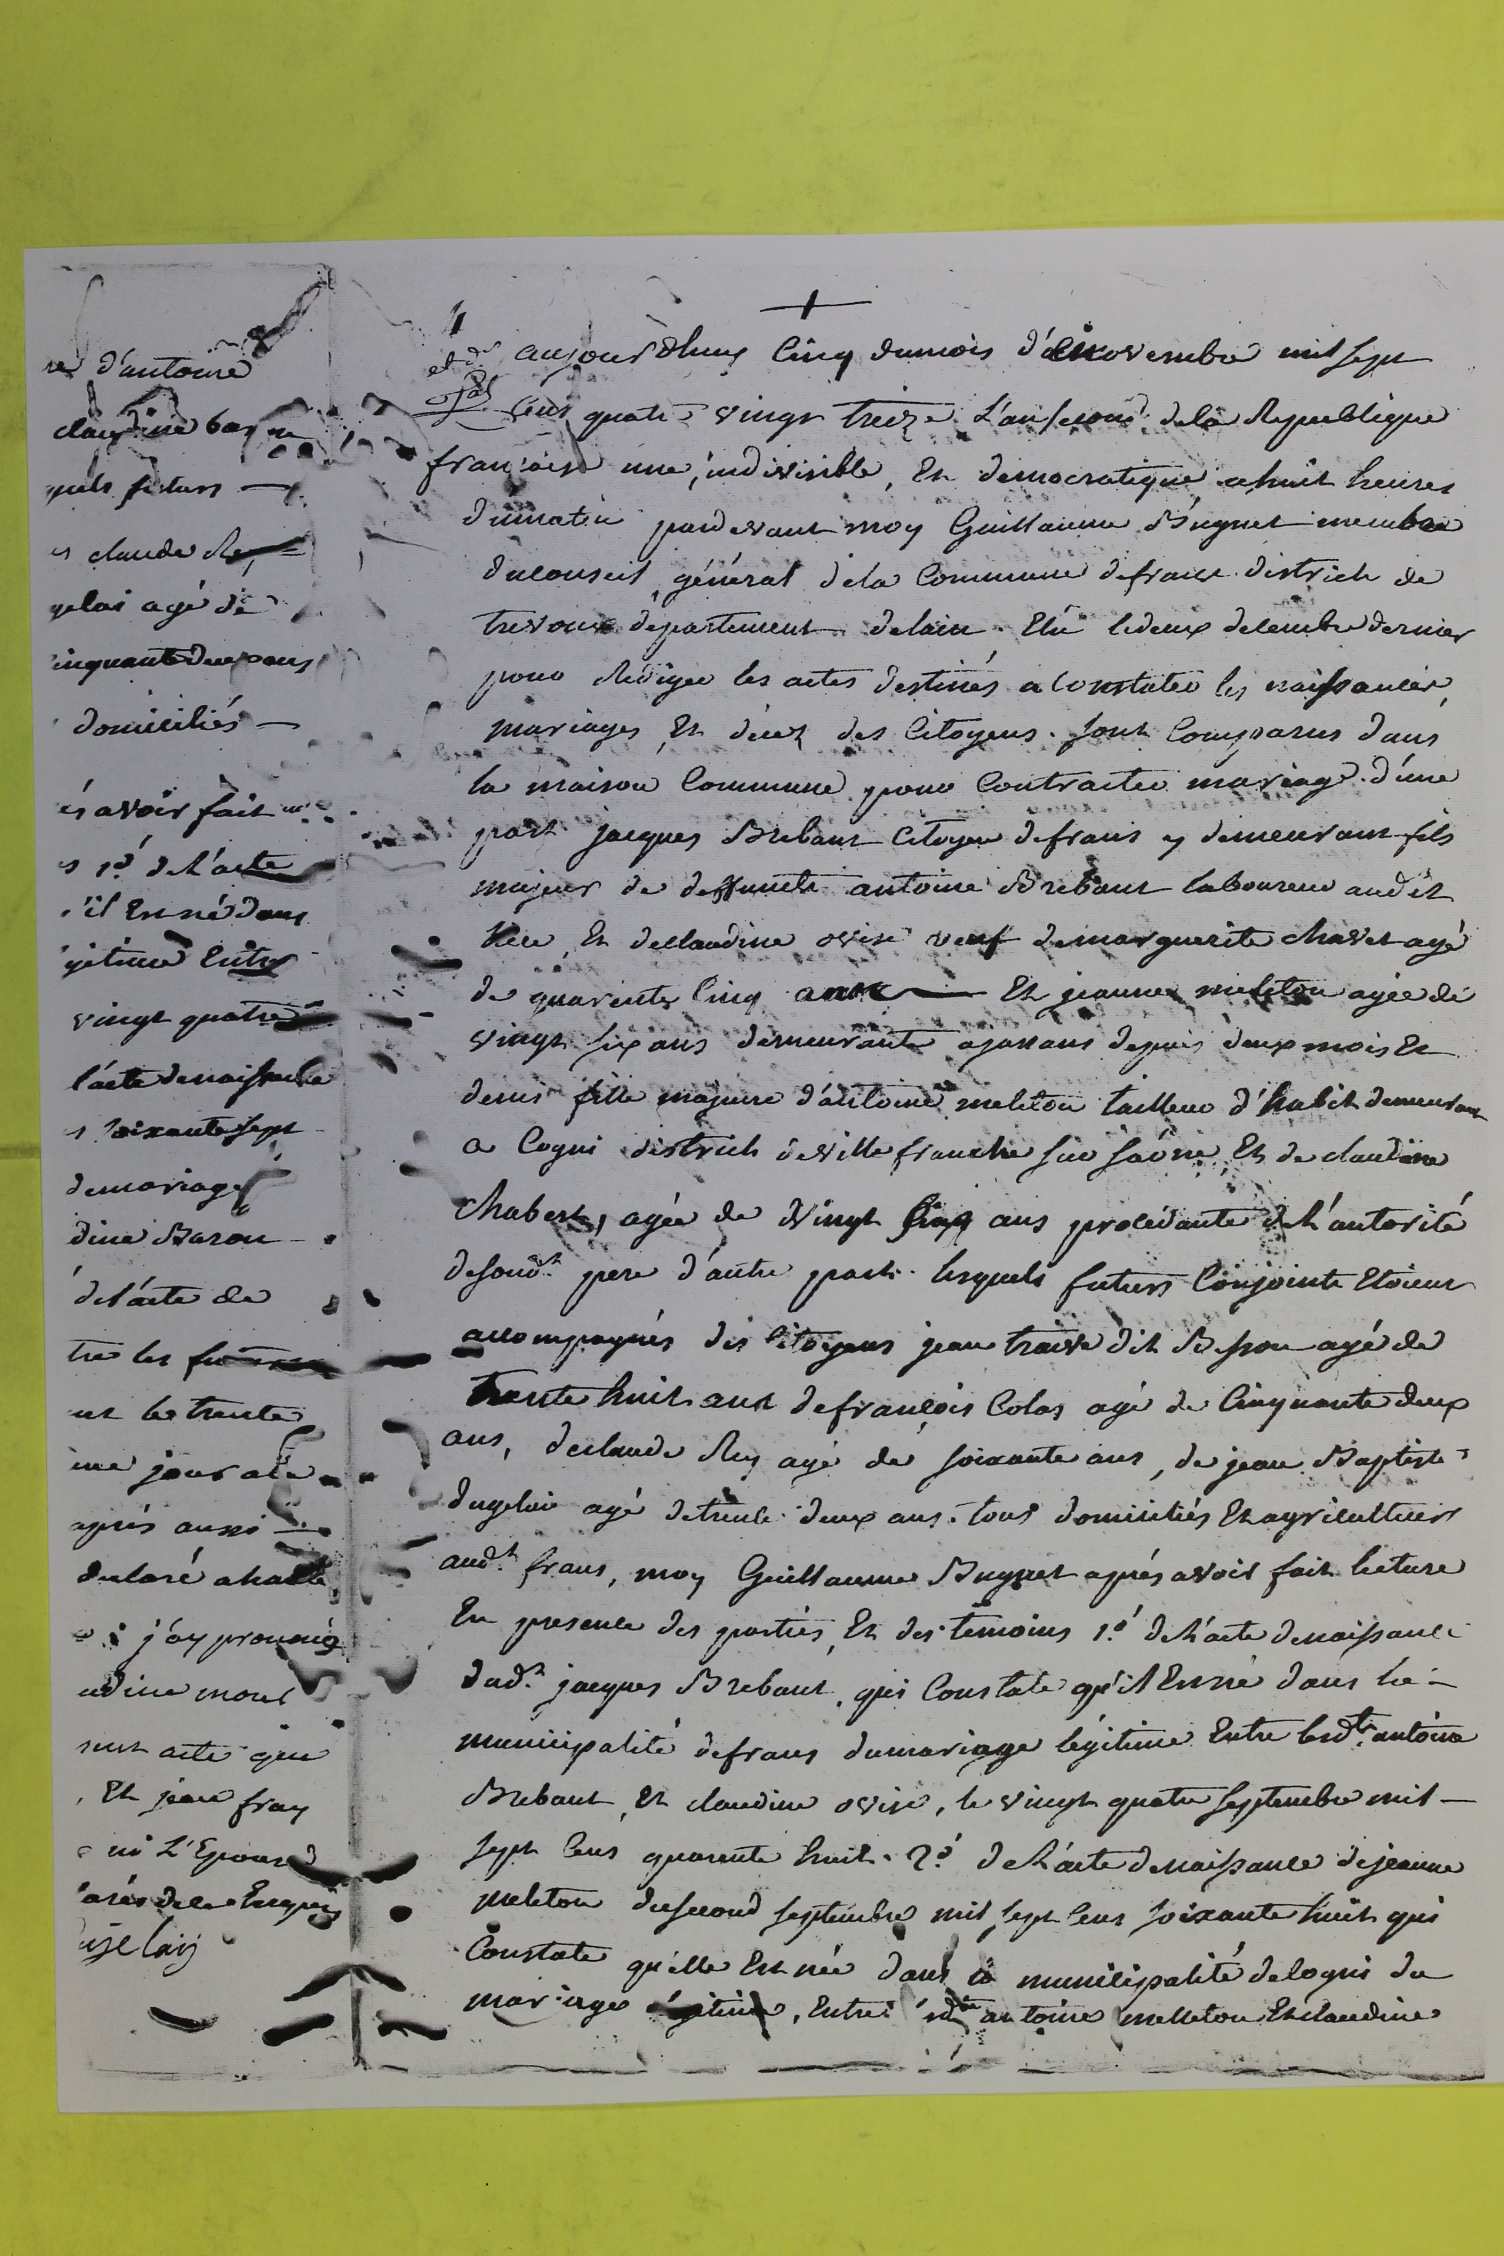 re d'antoine
claudine baron
quels futurs —
es claude Rey
gelai agé de
cinquante deux ans
domiciliés —
és avoir fait
s 1.º de l'acte
'il Est né dans
gitime Entre
vingt quatre
l'acte de naissance
s soixante sept
de mariage
dine Baron —
de l'acte de
tre les
ut le trente
me jour a la
aprés aussi —
declaré a haute
j'ay prononcé
udine mout
sent acte que
, Et jean fray
ni L'Epoux
arés de ce Enquis
ugelay
4
aujourdhuy Cinq du mois de novembre mil sept
Cens quatre vingt treize L'an second de la Republique
françoise une, indivisible, Et democratique a huit heures
du matin pardevant moy Guillaume Bugnet membre
du conseil général de la Commune de frans district de
trevoux departement de lain. Elu le deux decembre dernier
pour Rediger les actes destinés a Constater les naissances,
mariages, Et décez des Citoyens. sont Comparus dans
la maison Commune pour Contracter mariage. d'une
part jacques Brebant Citoyen de frans y demeurant fils
majeur de deffunte antoine Brebant laboureur audit
lieu, Et de Claudine ovise veuf de marguerite chavet agé
de quarente Cinq ans — Et jeanne meleton agée de
vingt six ans demeurante a jassans depuis deux mois Et
demi fille majeure d'antoine meleton tailleur d'habit demeurant
a Cogni district de ville franche sur saône, Et de claudine
Chabert, agée de Vingt Cinq ans procédante de l'autorité
de sond.t pere d'autre part. lesquels futurs Conjoints Etoient
accompagnés des Citoyens jean traive dit Besson agé de
trente huit ans de françois Colas agé de Cinquante deux
ans, de claude Rey agé de soixante ans, de jean Baptiste
dugelai agé de trente deux ans. tous domiciliés Et agriculteurs
aud.t frans, moy Guillaume Bugnet aprés avoir fait lecture
En presence des parties, Et des temoins 1.º de l'acte de naissance
dud.t jacques Brebant, qui Constate qu'il Est né dans la —
municipalité de frans du mariage légitime Entre lesd.ts antoine
Brebant, Et claudine ovise, le vingt quatre septembre mil —
sept Cens quarente huit. 2.º de l'acte de naissance de jeanne
meleton du second septembre mil sept Cens soixante huit qui
Constate qu'elle Est née dans la municipalité de Cogni du
mariage légitime, Entre antoine melleton Et claudine